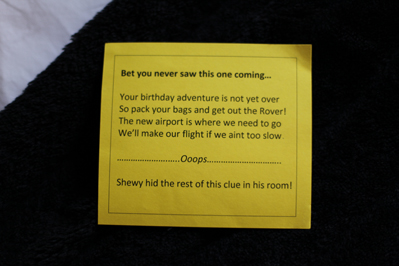 Bet you never saw this one coming...
Your birthday adventure is not yet over
So pack your bags and get out the Rover!
The new airport is where we need to go
We'll make our flight if we aint too slow
............................Ooops................................
Shewy hid the rest of this clue in his room!